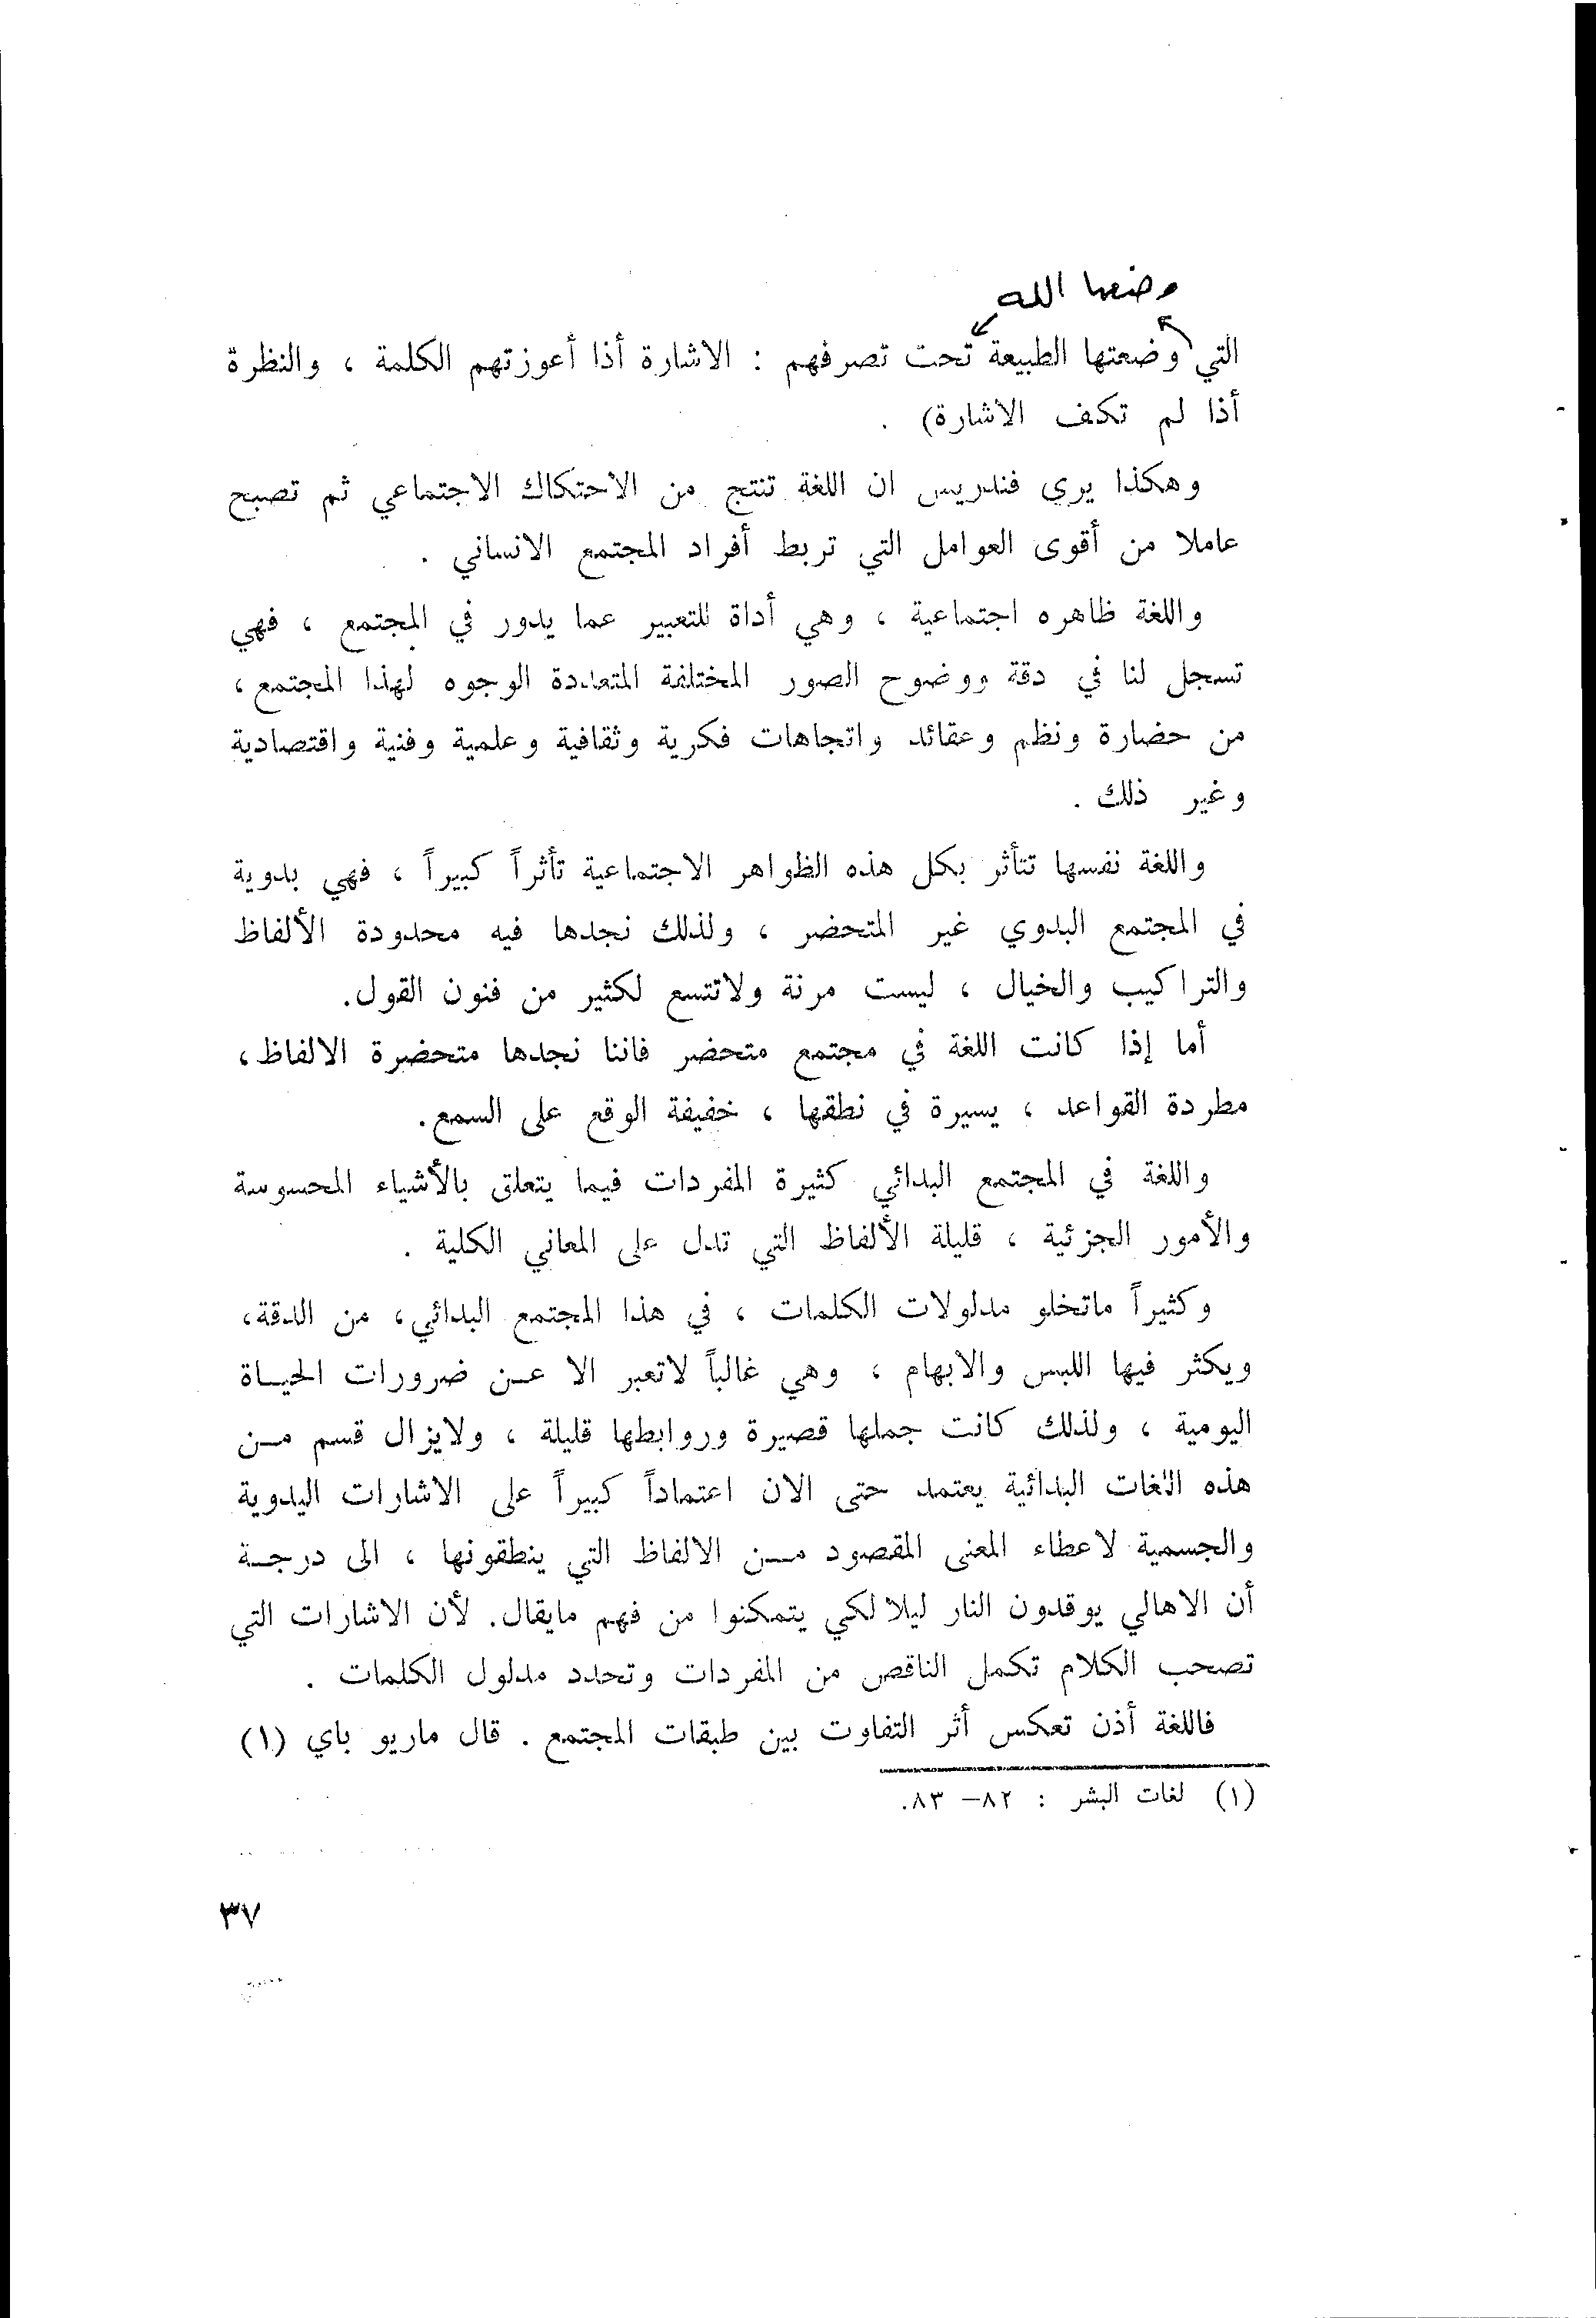 وضعها الله
التي وضعتها الطبيعة تحت تصرفهم : الاشارة أذا أعوزتهم الكلمة ، والنظرة
أذا لم تكف الاشارة) .
وهكذا يرى فندريس ان اللغة تنتج من الاحتكاك الاجتماعي ثم تصبح
عاملا من أقوى العوامل التي تربط أفراد المجتمع الانساني .
واللغة ظاهره اجتماعية ، وهي أداة للتعبير عما يدور في المجتمع ، فهي
تسجل لنا في دقة ووضوح الصور المختلفة المتعددة الوجوه لهذا المجتمع،
من حضارة ونظم وعقائد واتجاهات فكرية وثقافية وعلمية وفنية واقتصادية
وغير ذلك .
واللغة نفسها تتأثر بكل هذه الظواهر الاجتماعية تأثراً كبيراً ، فهي بدوية
في المجتمع البدوي غير المتحضر ، ولذلك نجدها فيه محدودة الألفاظ
والتراكيب والخيال ، ليست مرنة ولاتتسع لكثير من فنون القول.
أما إذا كانت اللغة في مجتمع متحضر فاننا نجدها متحضرة الالفاظ،
مطردة القواعد ، يسيرة في نطقها ، خفيفة الوقع على السمع.
واللغة في المجتمع البدائي كثيرة المفردات فيما يتعلق بالأشياء المحسوسة
والأمور الجزئية ، قليلة الألفاظ التي تدل على المعاني الكلية .
وكثيراً ماتخلو مدلولات الكلمات ، في هذا المجتمع البدائي، من الدقة،
ويكثر فيها اللبس والابهام ، وهي غالباً لاتعبر الا عـن ضرورات الحيـاة
اليومية ، ولذلك كانت جملها قصيرة وروابطها قليلة ، ولايزال قسم مـن
هذه اللغات البدائية يعتمد حتى الان اعتماداً كبيراً على الاشارات اليدوية
والجسمية لاعطاء المعنى المقصود مـن الالفاظ التي ينطقونها ، الى درجـة
أن الاهالي يوقدون النار ليلا لكي يتمكنوا من فهم مايقال. لأن الاشارات التي
تصحب الكلام تكمل الناقص من المفردات وتحدد مدلول الكلمات .
فاللغة أذن تعكس أثر التفاوت بين طبقات المجتمع . قال ماريو باي (١)
(١) لغات البشر : ٨٢– ٨٣.
٣٧